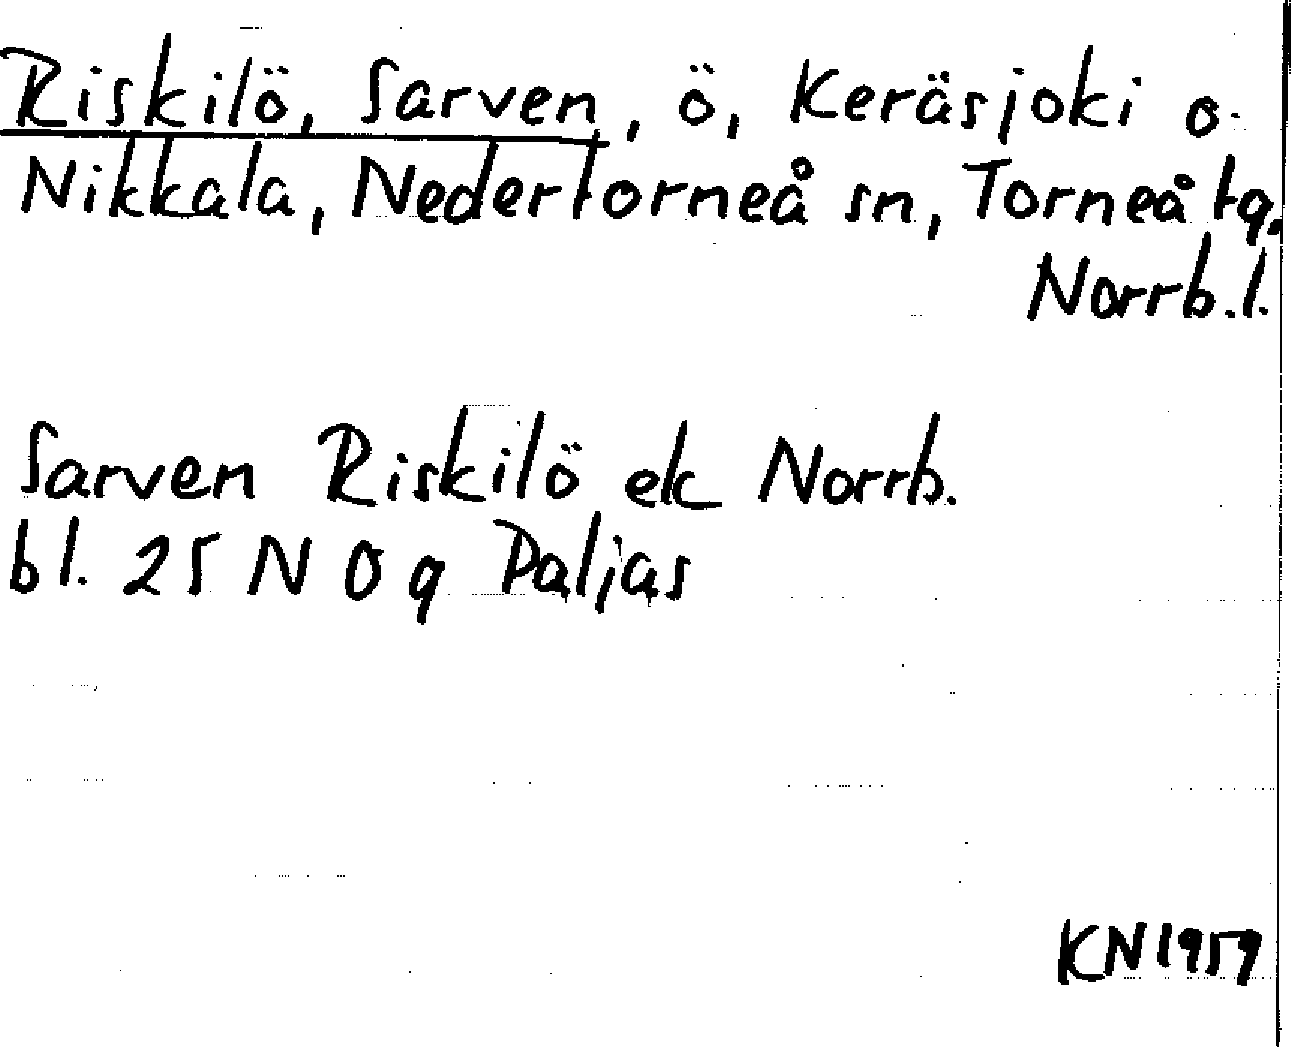 Riskilö, Sarven, ö, Keräsjoki o.
Nikkala, Nedertorneå sn, Torneå tg,
Norrb. l.
Sarven Riskilö ek Norrb.
bl. 25 N 0 g Paljas
KN 1959